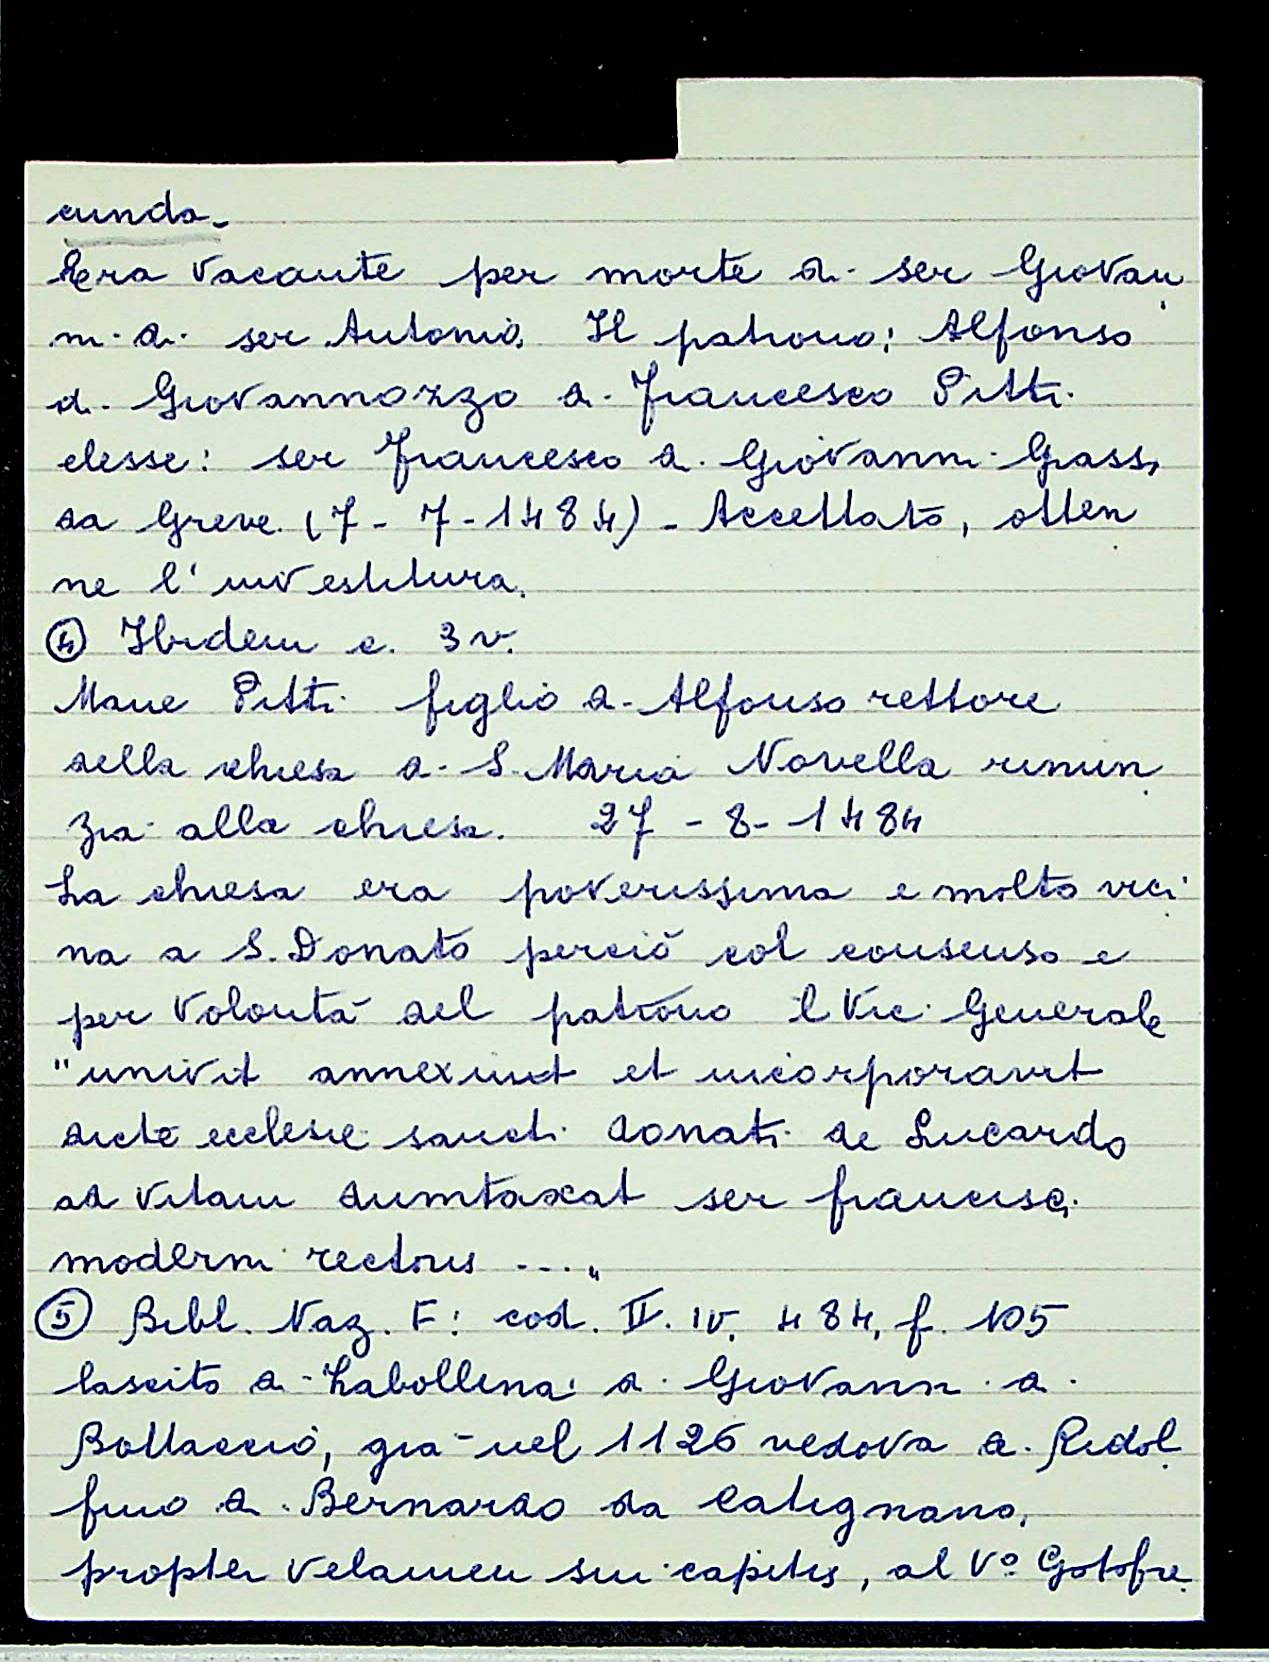 cunda.
Era vacante per morte di ser Giovan
ni di ser Antonio. Il patrono: Alfonso
di Giovannozzo di Francesco Pitti
elesse: ser Francesco di Giovanni Grassi
da Greve (7-7-1484) - Accettato, otten
ne l'investitura.
④ Ibidem c. 3v.
Mane Pitti figlio di Alfonso rettore
della chiesa di S. Maria Novella rinun
zia alla chiesa. 27-8-1484
La chiesa era poverissima e molto vici
na a S. Donato perciò col consenso e
per volontà del patrono il Vic. Generale
"univit annexuit et incorporavit
dicte ecclesie sancti donati de Lucardo
ad vitam dumtaxat ser francisci
moderni rectoris ...."
⑤ Bibl. Naz. F: cod. II. IV. 484, f. 105
lascito di Labollina di Giovanni di
Bottaccio, già nel 1126 vedova di Ridol
fino di Bernardo da Catignano,
propter velamen sui capitis, al Vº Gotofre